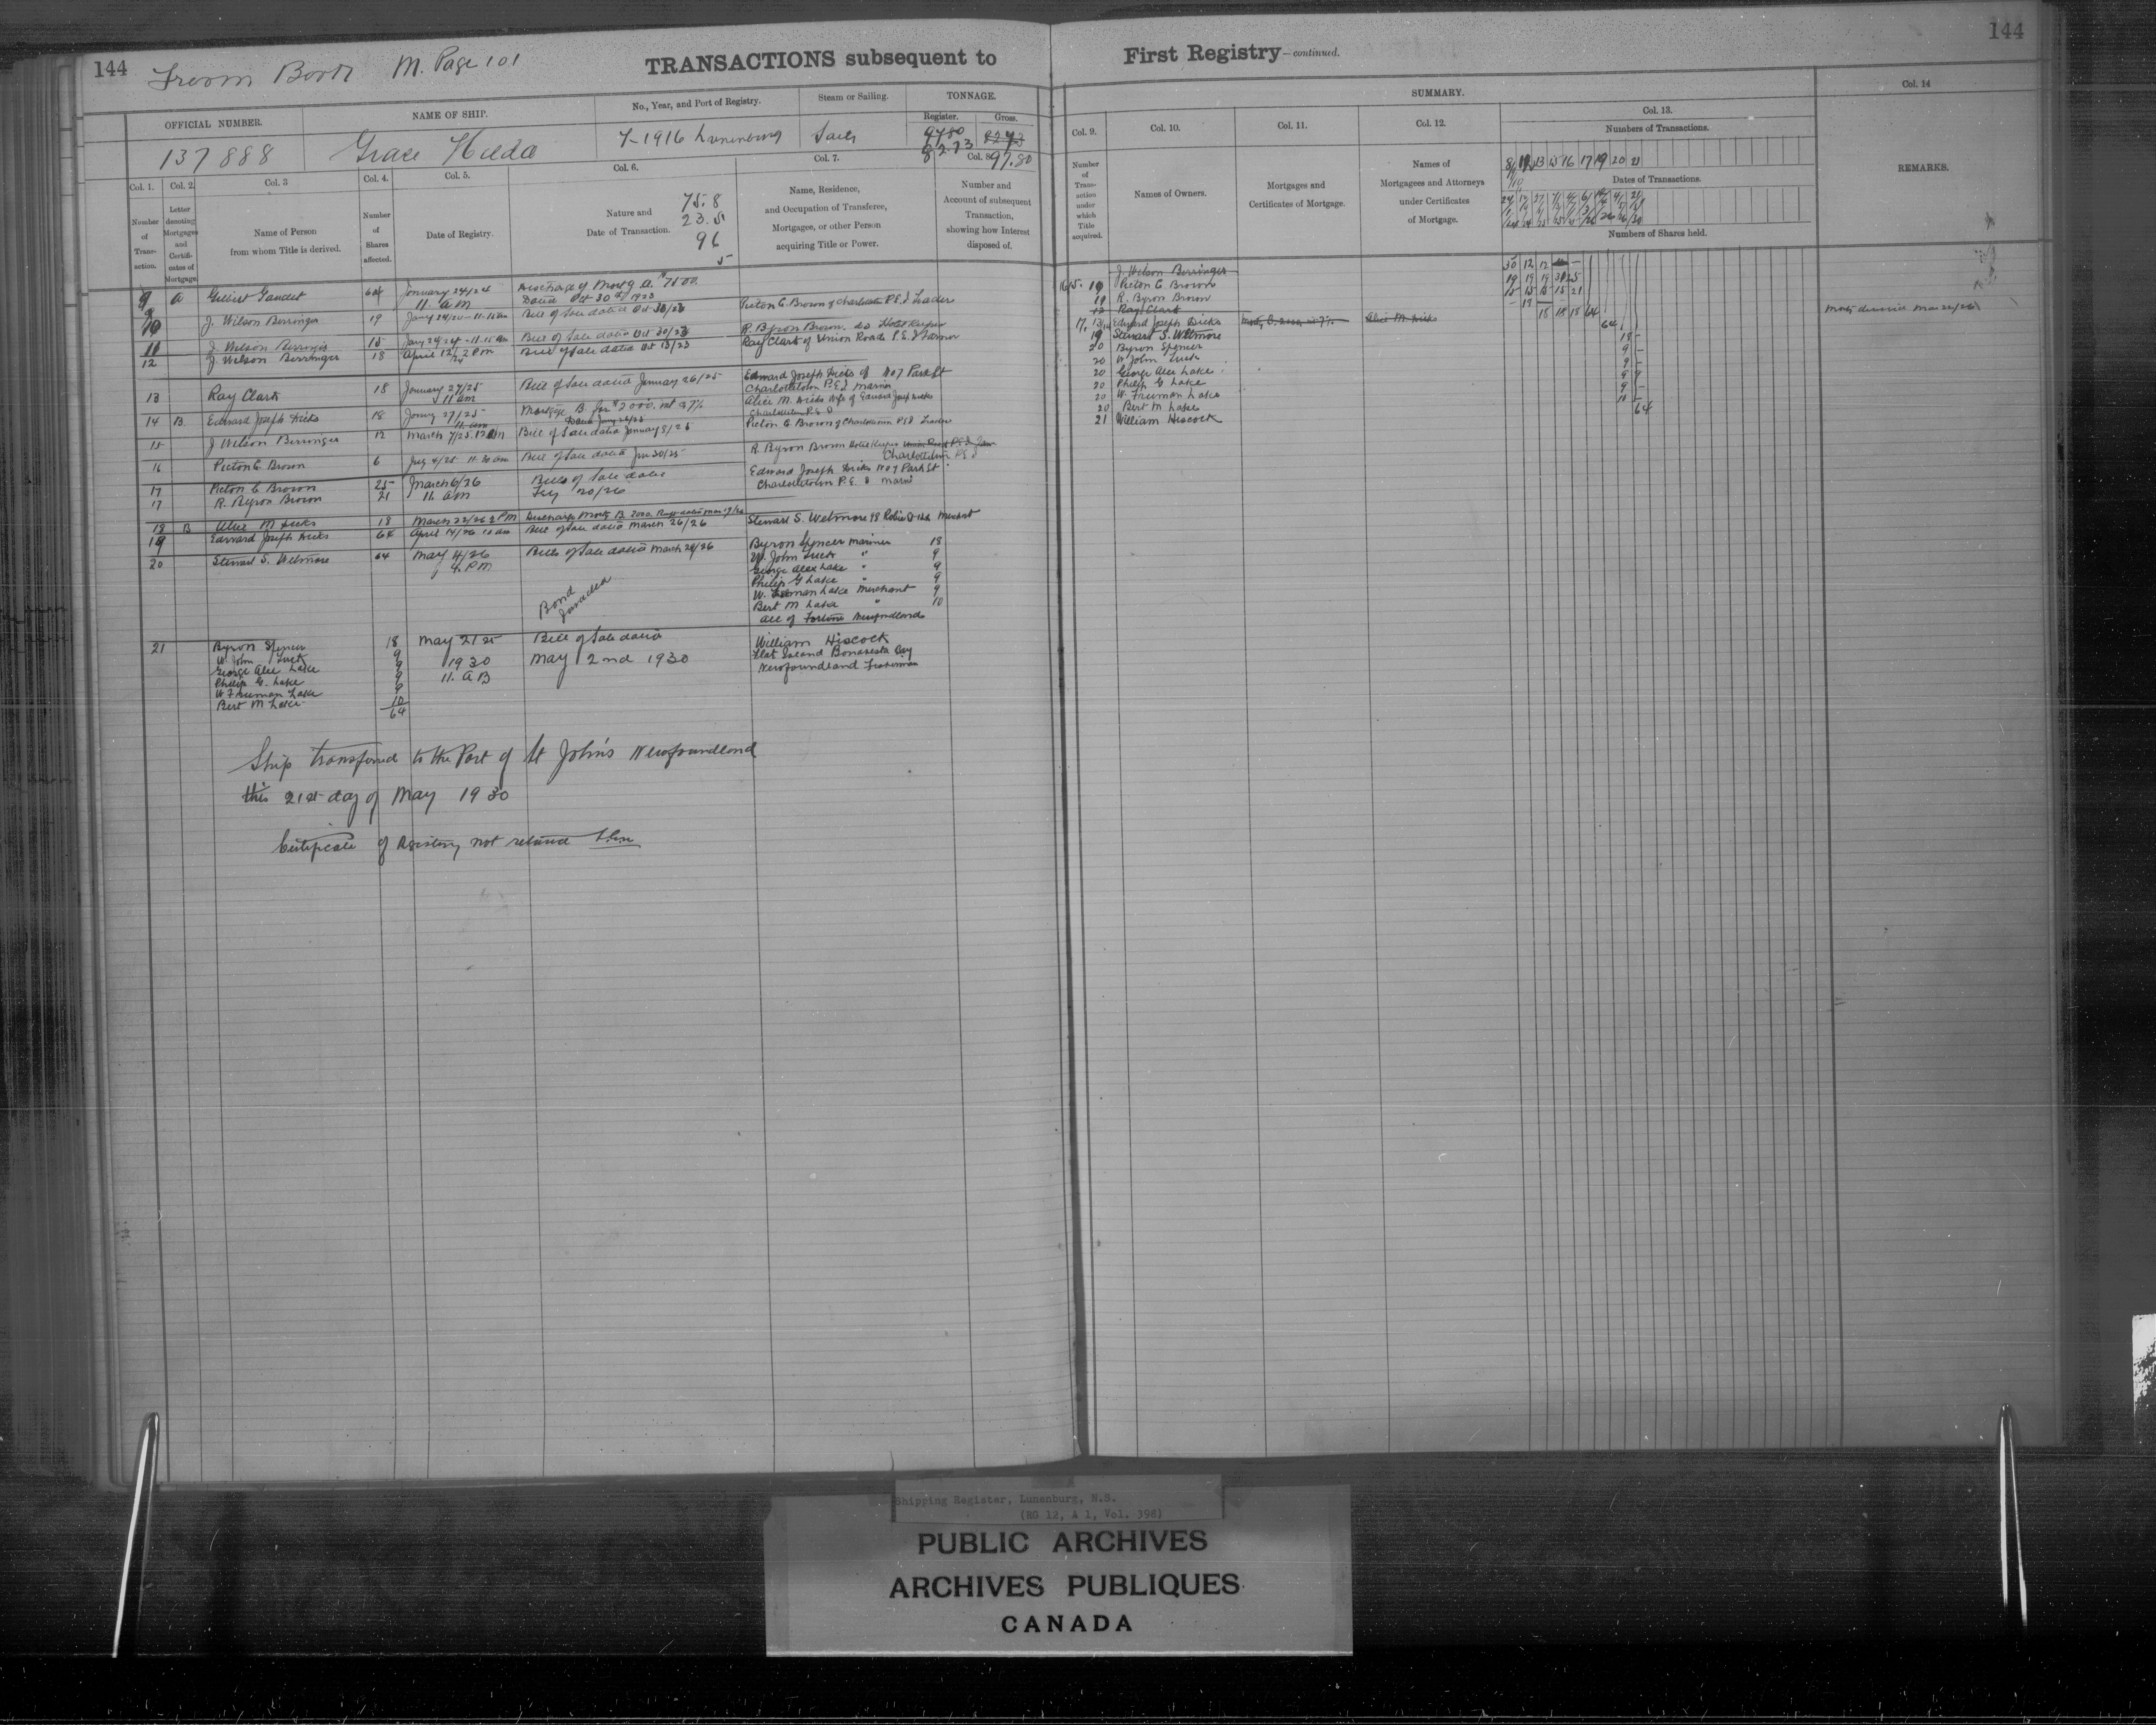 144
From Book M. Page 101
TRANSACTIONS subsequent to
First Registry—continued.
144
OFFICIAL NUMBER.
NAME OF SHIP.
No., Year, and Port of Registry.
Steam or Sailing.
TONNAGE.
Register.
Gross.
137888
Grace Hilda
7-1916 Lunenburg
Sails
97.80
82.73
82.73
97.80
Col. 1.
Col. 2.
Col. 3
Col. 4.
Col. 5.
Col. 6.
Col. 7.
Col. 8.
Number of Trans-action.
Letter denoting Mortgages and Certifi-cates of Mortgage.
Name of Person from whom Title is derived.
Number of Shares affected.
Date of Registry.
Nature and Date of Transaction.
75.8
23.5
9.6
Name, Residence, and Occupation of Transferee, Mortgagee, or other Person acquiring Title or Power.
Number and Account of subsequent Transaction, showing how Interest disposed of.
9 A Gaudet 64 January 24/24 11. a.m Discharge of Mortg A. $7500 Dated Oct 30th 1923
10 J. Wilson Berringer 19 Jany 24/24 - 11.15 am Bill of Sale dated Oct 30/23 Picton C. Brown of Charlottetown P.E.I Trader
11 J. Wilson Berringer 15 Jany 24/24 - 11.15 am Bill of Sale dated Oct 30/23 R. Byron Brown. do Hotel Keeper
12 J. Wilson Berringer 18 April 12/24 2 Pm Bill of Sale dated Oct 13/23 Ray Clark of Union Road P.E.I Farmer
13 Ray Clark 18 January 27/25 11 am Bill of Sale dated January 26/25 Edward Joseph Dicks of No 7 Park St
Charlottetown P.E.I Marin
14 B. Edward Joseph Dicks 18 Jany 27/25 11. am Mortgage B. for $2000. int @ 7% Dated Jany 26/25 Alice M. Dicks wife of Edward Josep Dicks
Charlottetown P.E.I
15 J Wilson Berringer 12 March 7/25. 12 am Bill of Sale dated January 8/25 Picton C Brown of Charlottetown P.E.I Trader
16 Picton C. Brown 6 July 4/25 11.30 am Bill of Sale dated Jun 30/25 R. Byron Brown Hotel Keeper
Charlottetown P.E.I
17 Picton C Brown 25 March 6/26 Bills of Sale dated Edward Joseph Dicks No 7 Park St
17 R. Byron Brown 21 11. am Feby 20/26 Charlottetown P.E.I Marin
18 B Alice M Dicks 18 March 22/26 2 PM Discharge Mortg B. 2000.
19 Edward Joseph Dicks 64 April 14/26 10 am Bill of Sale dated March 26/26 Stewart S. Wetmore 98 Robie St Merchant
20 Stewart S. Wetmore 64 May 4/26 4. P.M Bills of Sale dated March 29/26 Byron Spencer Mariner 18
W. John Tuck " 9
George Alex Lake " 9
Philip G Lake " 9
W. Freeman Lake Merchant 9
Bert M Lake " 10
all of Fortune Newfoundland
Bond
21 Byron Spencer 18 May 21st Bill of Sale dated William Hiscock
W. John Tuck 9 1930 May 2nd 1930 Flat Island Bonavista Bay
George Alex Lake 9 11. a.m Newfoundland Fisherman
Philip G. Lake 9
W Freeman Lake 9
Bert M Lake 10
64
Ship transferred to the Port of St John's Newfoundland
this 21st day of May 1930
Certificate of Registry not returned
SUMMARY.
Col. 9.
Col. 10.
Col. 11.
Col. 12.
Col. 13.
Col. 14
Number of Trans-action under which Title acquired.
Names of Owners.
Mortgages and Certificates of Mortgage.
Names of Mortgagees and Attorneys under Certificates of Mortgage.
Numbers of Transactions.
Dates of Transactions.
Numbers of Shares held.
REMARKS.
J. Wilson Berringer
10 Picton C Brown
11 R. Byron Brown
12 Ray Clark
17, 13 Edward Joseph Dicks Alice M. Dicks
19 Stewart S. Wetmore
20 Byron Spencer
20 W John Tuck
20 George Alex Lake
20 Philip G Lake
20 W. Freeman Lake
20 Bert M Lake
21 William Hiscock
Shipping Register, Lunenburg, N.S.
(RG 12, A 1, Vol. 398)
PUBLIC ARCHIVES
ARCHIVES PUBLIQUES
CANADA